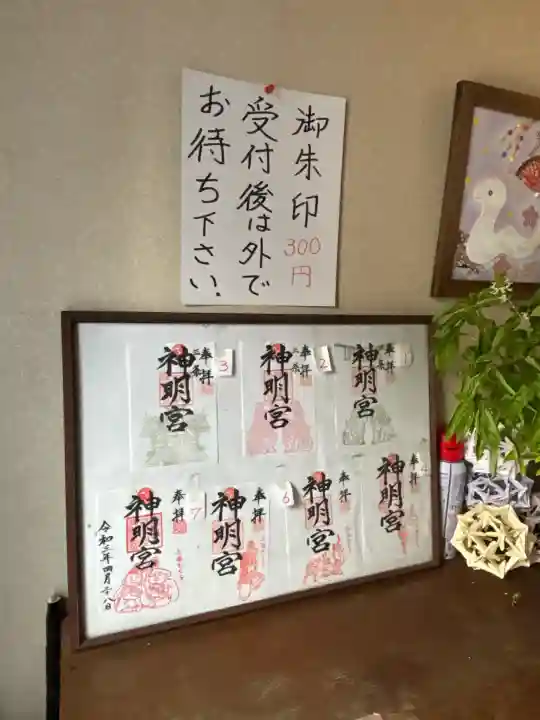 御朱印
300
円
受付後は外で
お待ち下さい.
1
奉拝
神明宮
2
奉拝
神明宮
3
奉拝
神明宮
4
奉拝
神明宮
奉拝
神明宮
6
奉拝
神明宮
7
奉拝
神明宮